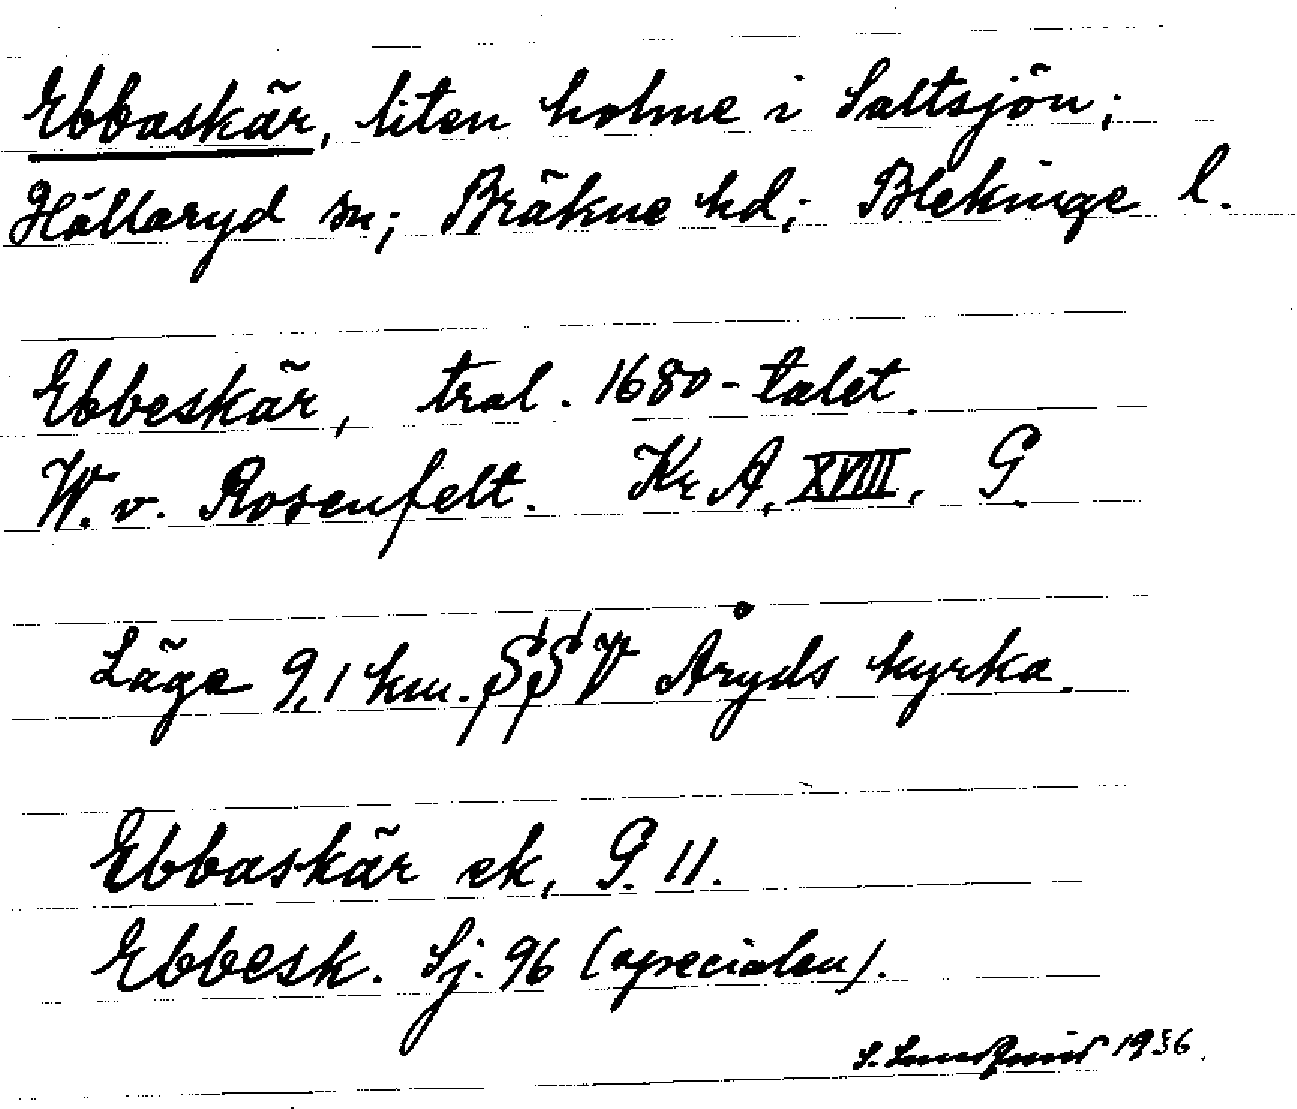 Ebbaskär, liten holme i Saltsjön;
Hällaryd sn; Bräkne hd; Blekinge l.
Ebbeskär, tral. 1680-talet.
W. v. Rosenfelt. Kr. A, XVIII, G.
Läge 9,1 km. SSV Åryds kyrka.
Ebbaskär ek, G. 11.
Ebbesk. Sj. 96 (specialen).
S. 1936.